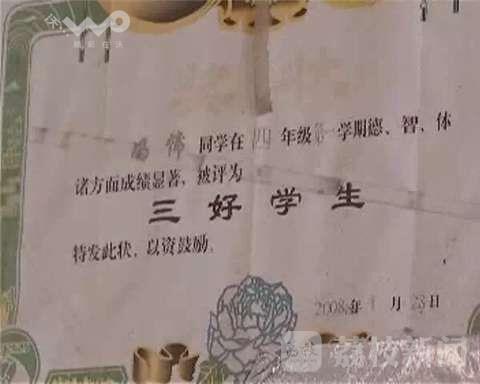 奖状
伟 同学在 四 年级第一学期德、智、体
诸方面成绩显著，被评为
三好学生
特发此状，以资鼓励。
2008年1月23日
荔枝新闻